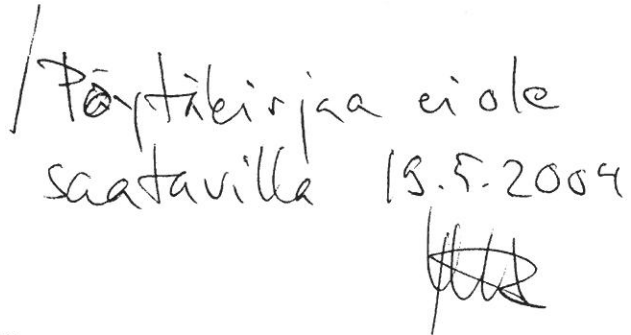 Pöytäkirjaa ei ole
saatavilla 19.5.2004